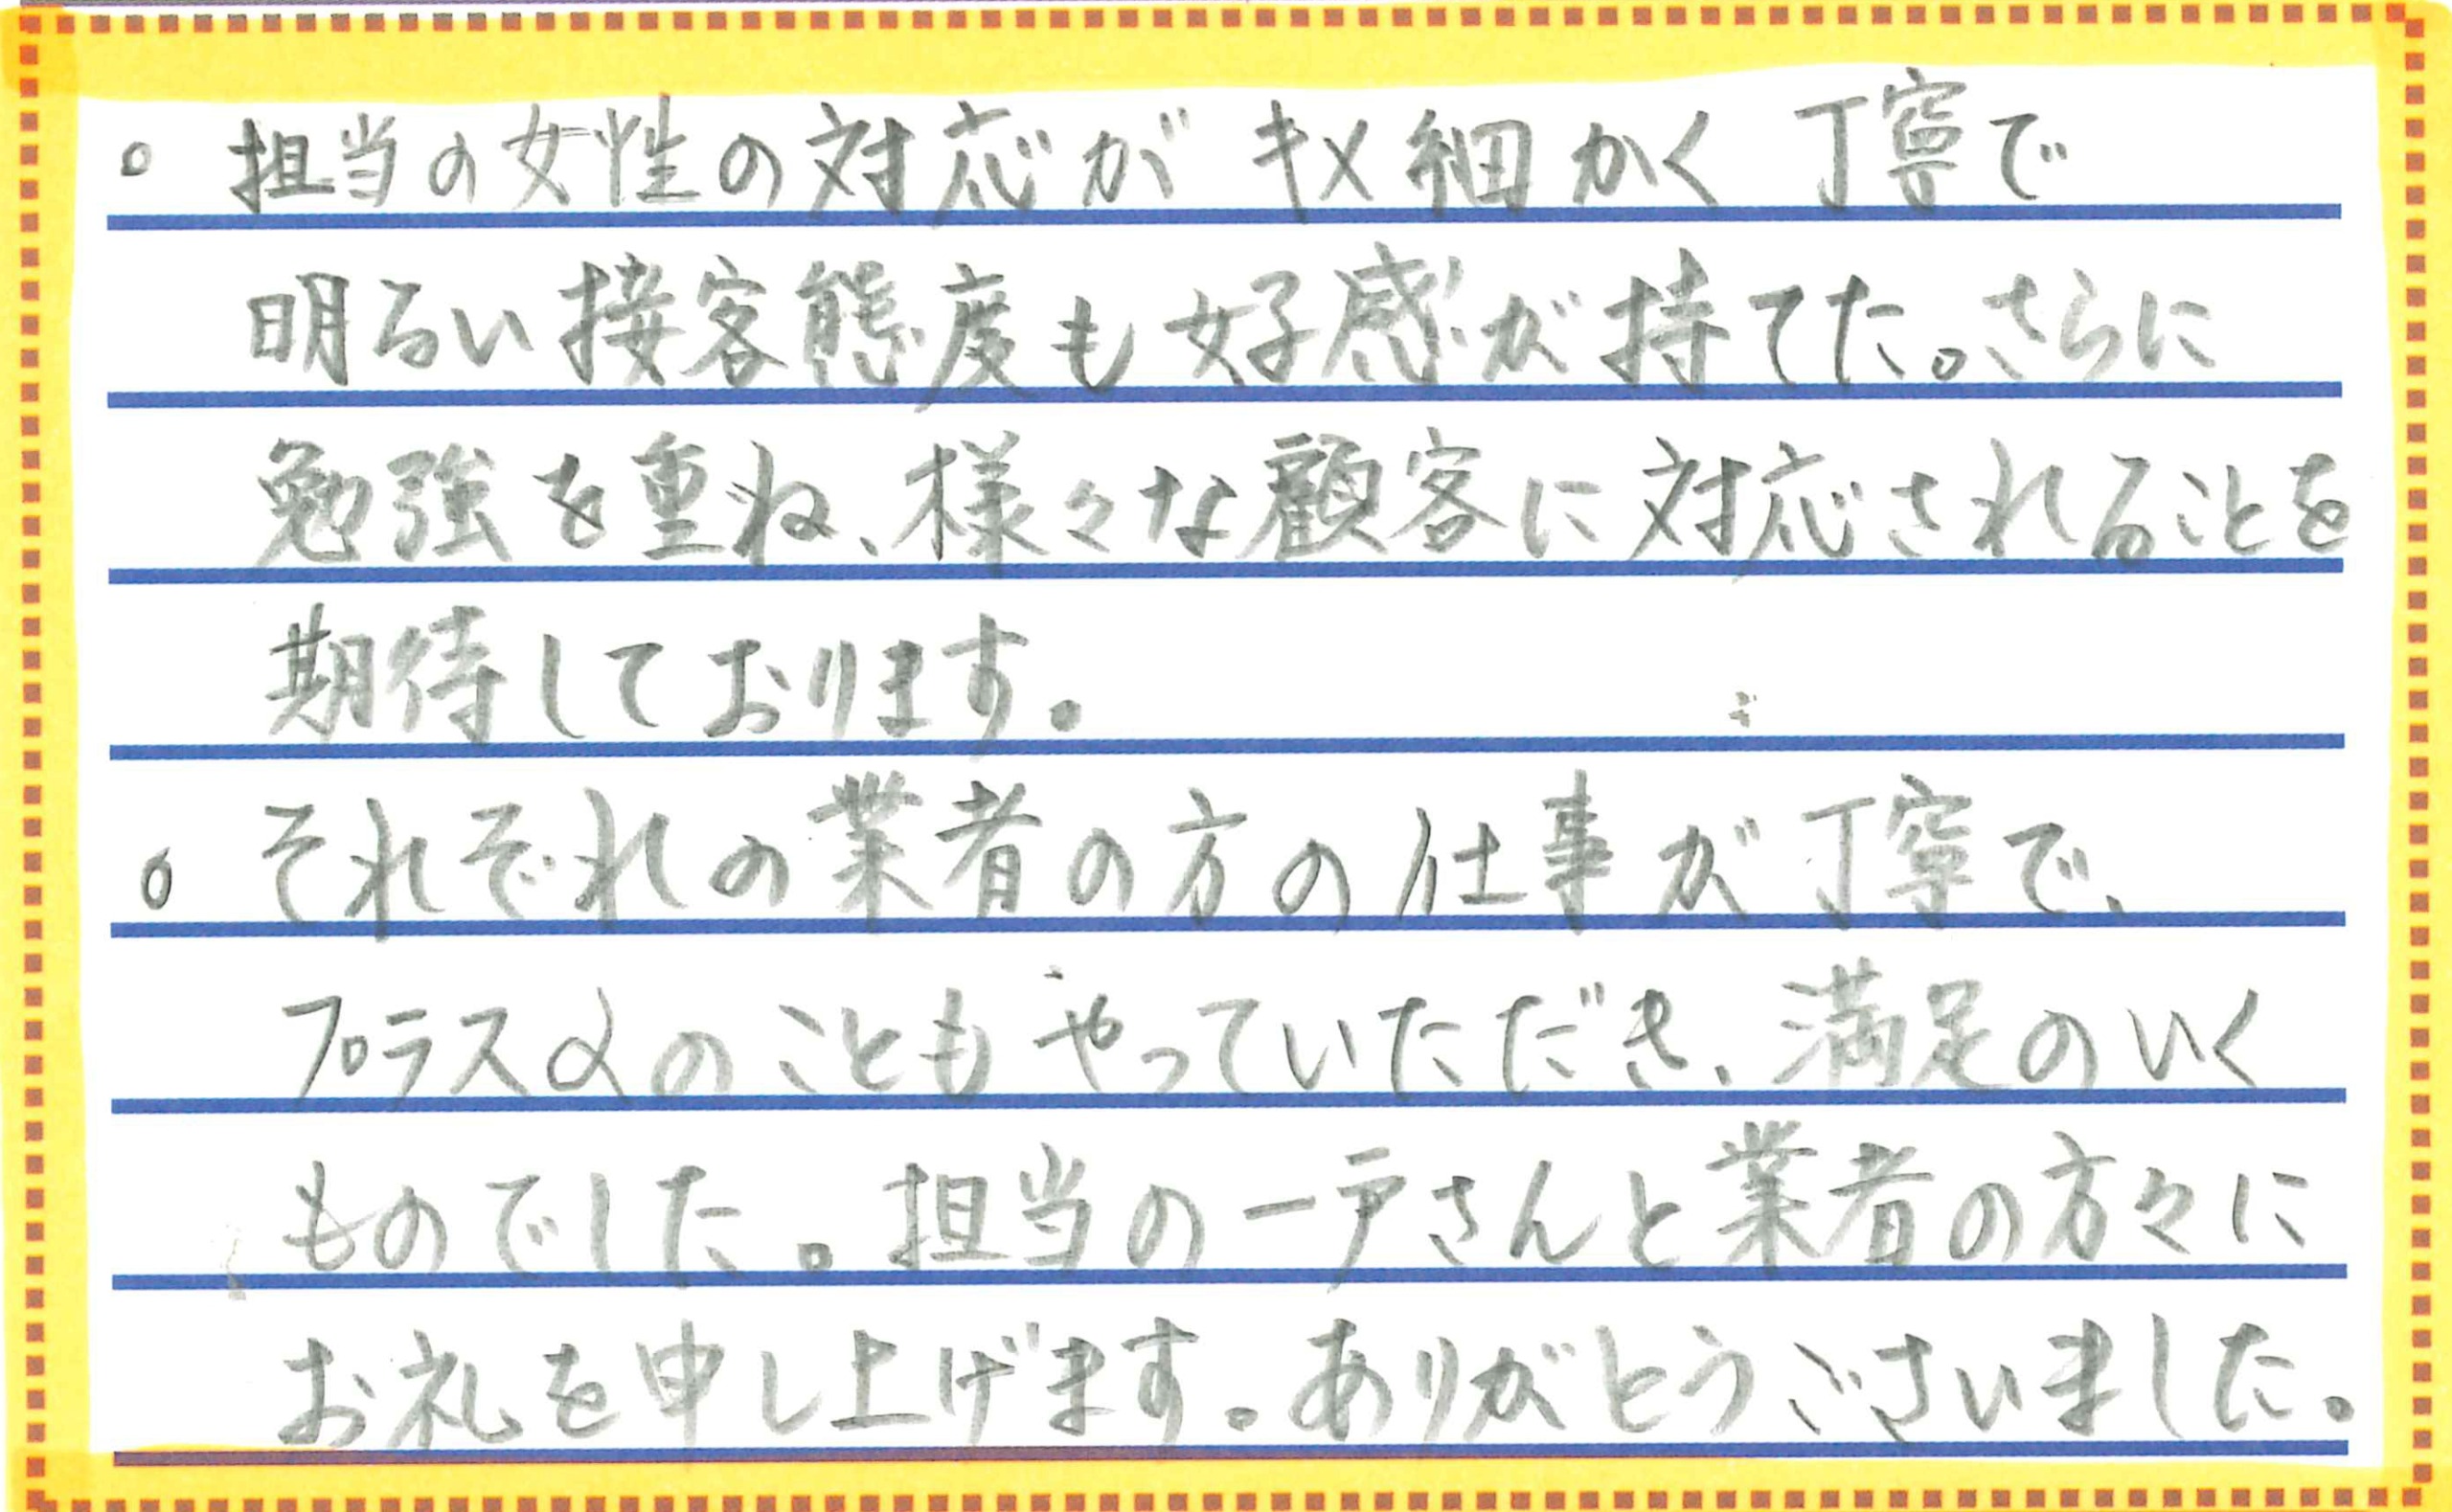 。担当の女性の対応がキメ細かく丁寧で
明るい接客態度も好感が持てた。さらに
勉強を重ね、様々な顧客に対応されることを
期待しております。
。それぞれの業者の方の仕事が丁寧で、
プラスαのこともやっていただき、満足のいく
ものでした。担当の一戸さんと業者の方々に
お礼を申し上げます。ありがとうございました。